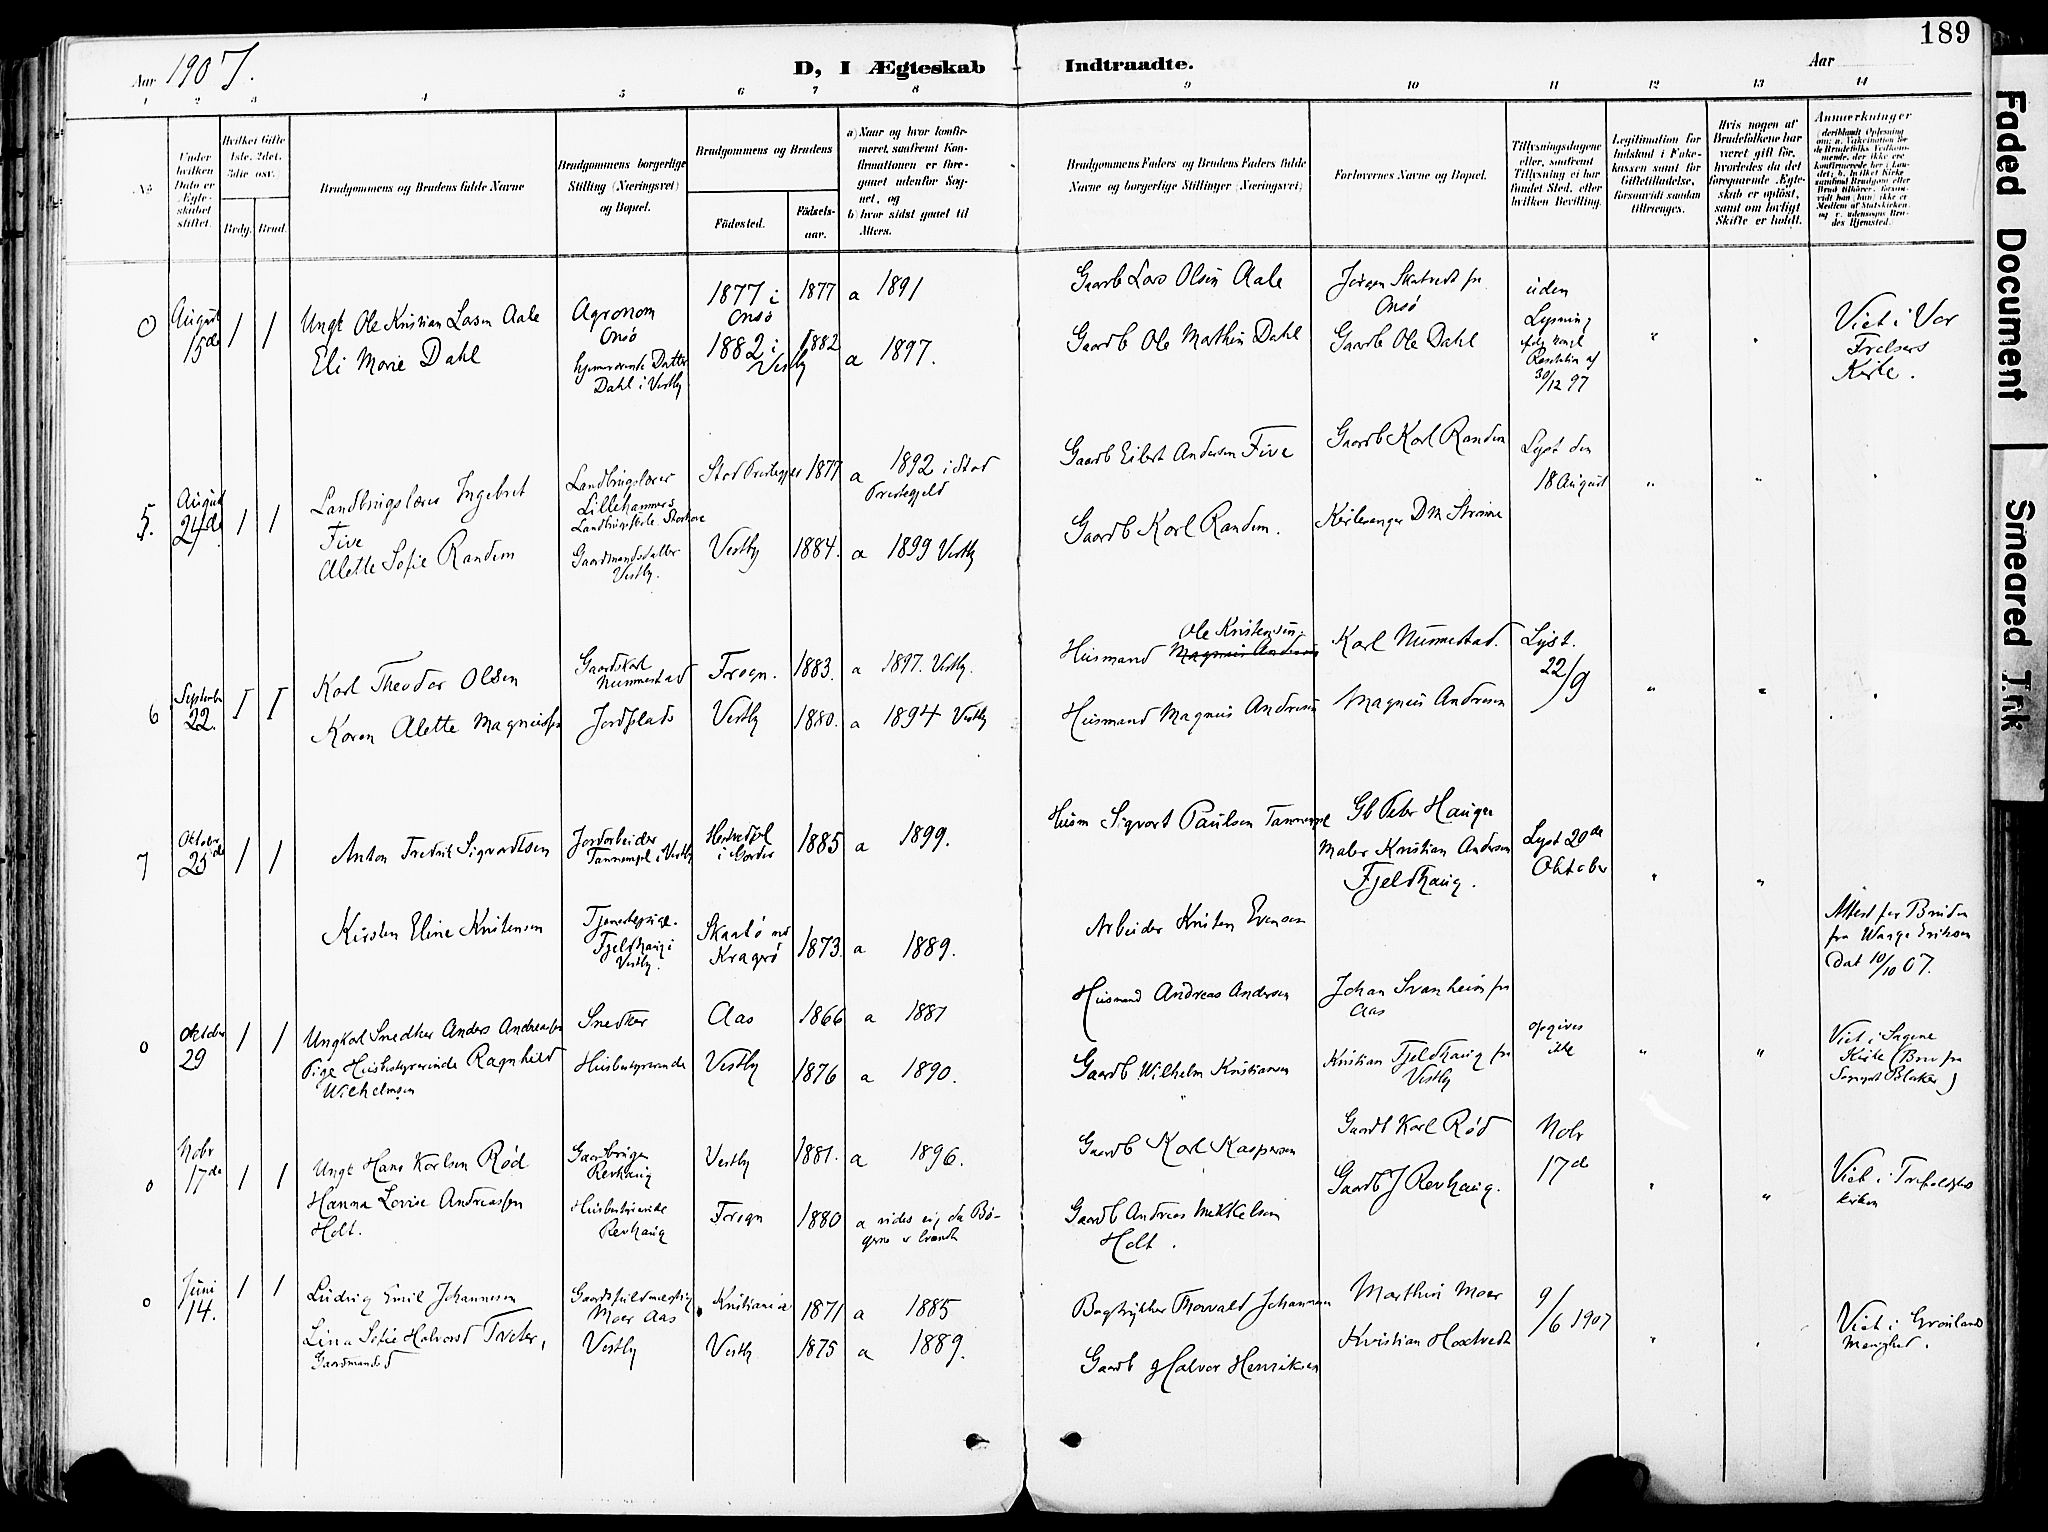 189
Aar 1907.
D, I Ægteskab Indtraadte.
Aar
1 2 3 4 5 6 7 8 9 10 11 12 13 14
No
Under hvilken Dato er Ægteskabet stiftet.
Hvilket Gifte 1ste, 2det, 3die osv.
Brdg. Brud.
Brudgommens og Brudens fulde Navne
Brudgommens borgerlige Stilling (Næringsvei) og Bopæl.
Brudgommens og Brudens
Födested.
Födselsaar.
a) Naar og hvor konfirmeret, saafremt Konfirmationen er foregaaet udenfor Sognet, og
b) hvor sidst gaaet til Alters.
Brudgommens Faders og Brudens Faders fulde Navne og borgerlige Stillinger (Næringsvei)
Forlovernes Navne og Bopæl.
Tillysningsdagene eller, saafremt Tillysning ei har fundet Sted, efter hvilken Bevilling.
Legitimation for Indskud i Enkekassen samt for Giftetilladelse, forsaavidt saadan tiltrænges.
Hvis nogen af Brudefolkene har været gift før, hvorledes da det foregaaende Ægteskab er opløst, samt om lovligt Skifte er holdt.
Anmærkninger
0 August 15de 1 1
Ungk Ole Kristian Larsen Aale
Agronom Onsö
1877 i Onsö 1877 a 1891
Gaardb Lars Olsen Aale
Jörgen Skatvedt fra Onsö
uden Lysning
30/12 97
" "
Viet i Vor Frelsers Kirke.
Eli Marie Dahl
hjemmeværende Datter Dahl i Vestby
1882 i Vestby 1882 a 1897.
Gaardb Ole Mathin Dahl
Gaardb Ole Dahl
5. August 24de 1 1
Landbrugslærer Ingebret Five
Landbrugslærer Lillehammers
1877 a 1892 i Stod Prestegjeld
Gaardb Eibert Andersen Five
Gaardb Karl Randem
Lyst den 18 August
" " "
Alette Sofie Randem
Gaardmandsdatter Vestby.
Vestby 1884. a 1899 Vestby
Gaardb Karl Randem.
Kirkesanger
6 September 22. 1 1
Karl Theodor Olsen
Gaardskarl Nummestad
Frogn. 1883. a 1897. Vestby.
Husmand Ole Kristensen
Karl Nummestad.
Lyst. 22/9
" " "
Karen Alette Magnussen
Jordplads
Vestby 1880. a 1894 Vestby
Husmand Magnus Andersen
Magnus Andersen
7 Oktober 25de 1 1
Anton Fredrik Sigvardtsen
Jordarbeider i Vestby
1885 a 1899.
Husm Sigvart Paulsen
Gb Peter Haugen
Maler Kristian Andersen Fjeldhaug.
Lyst 20de Oktober
" "
Kirsten Eline Kristensen
Tjenestepige. Fjeldhaug i Vestby.
Skaatö ved Kragerö 1873. a 1889.
Arbeider Kristen Evensen
Attest for Bruden fra Waage Eriksen Dat 10/10 07.
0 Oktober 29 1 1
Ungkarl Snedker Anders Andreassen
Snedker
Aas 1866 a 1881
Husmand Andreas Andersen
Johan Svanheim fra Aas
opgives ikke
" "
Viet i Sagene Kirke (Brev fra Sognepr Blaker)
Pige Husbestyrerinde Ragnhild Wilhelmsen
Husbestyrerinde
Vestby 1876 a 1890.
Gaardb Wilhelm Kristiansen
Kristian Fjeldhaug fra Vestby
0 Nobr 17de 1 1
Ungk Hans Karlsen Rød
Gaardbruger Revhaug
Vestby 1881. a 1896.
Gaardb Karl Kaspersen
Gaardb Karl Rød
Nobr 17d
" "
Viet i Trefoldighedskirken
Hanna Lovise Andreassen Holt.
Husbestyrerinde Revhaug
Frogn 1880 a vides ei, da Bögerne er brændt
Gaardb Andreas Mikkelsen Holt.
Gaardb J Revhaug.
0 Juni 14. 1 1
Ludvig Emil Johannesen
Gaardsfuldmægtig Moer Aas
Kristiania 1871 a 1885
Bogtrykker Thorvald Johannesen
Marthin Moer
9/6 1907
" "
Viet i Grönlands Menighed.
Lina Sofie Halvorsd Treter, Gaardmandsd
Vestby
Vestby 1875 a 1889.
Gaardb Halvor Henriksen
Kristian Hoxtvedt
Faded Document
Smeared Ink